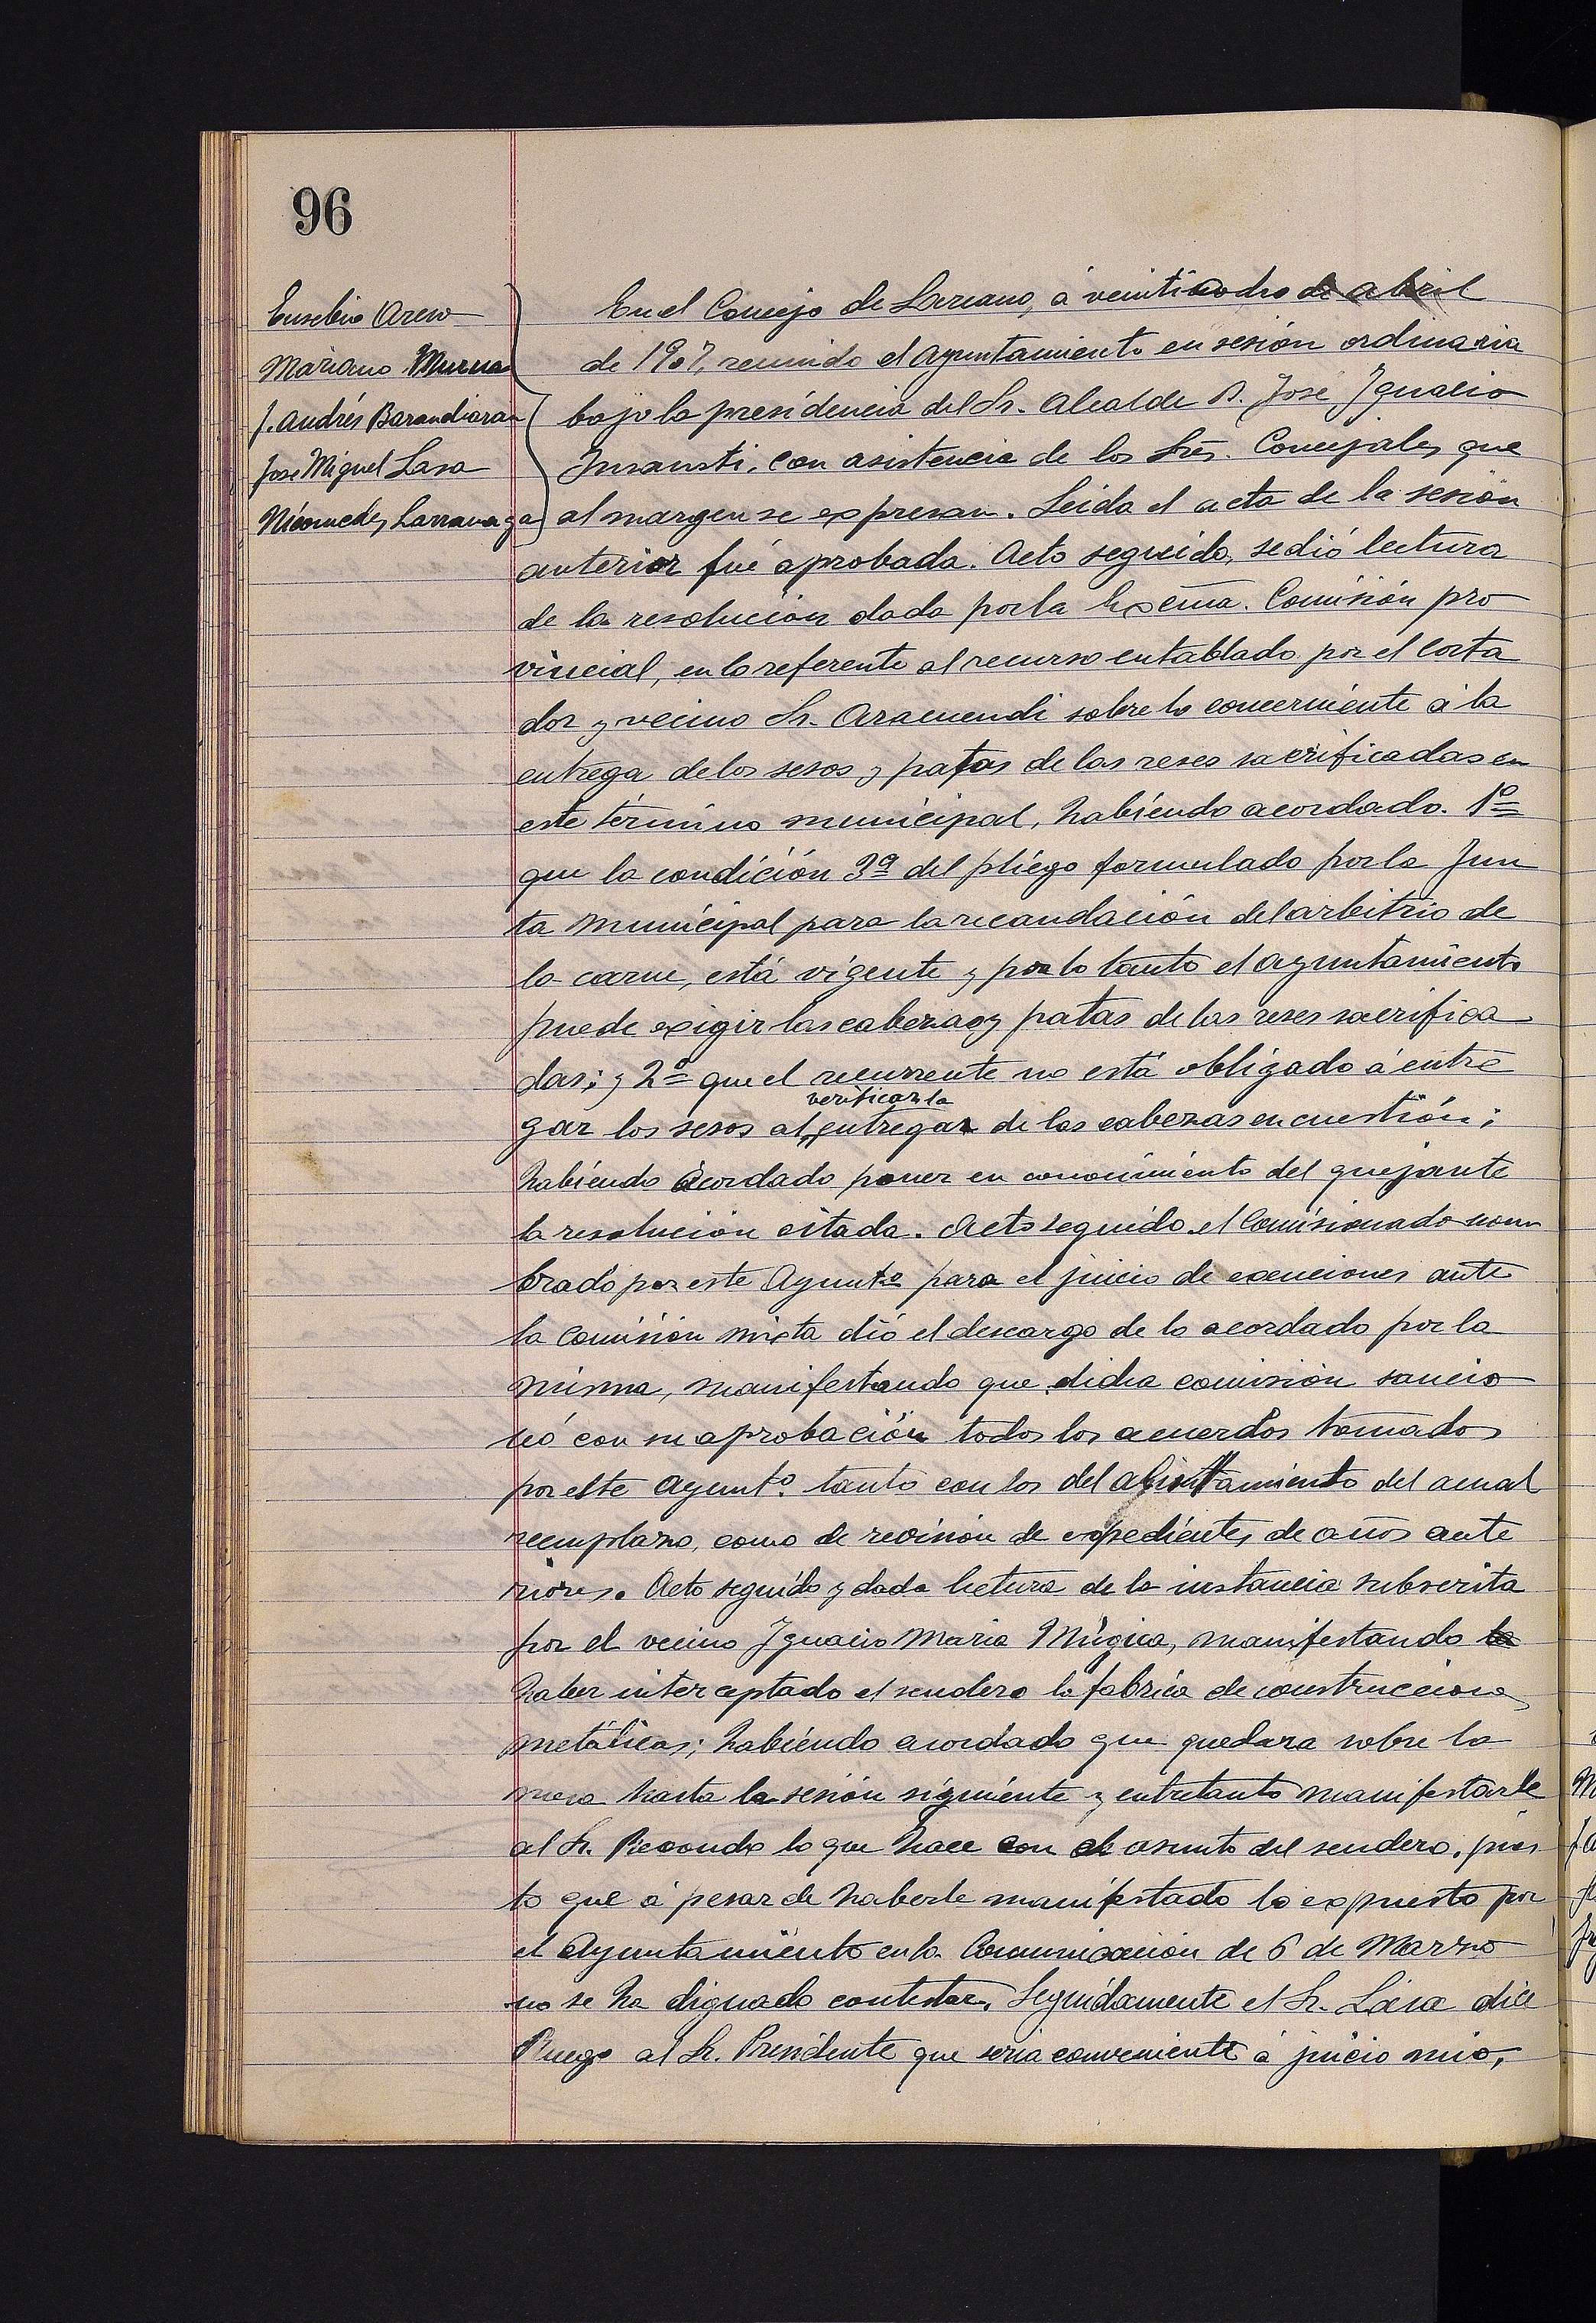 96
Eusebio Areso
Mariano Murua
J. Andrés Barandiaran
José Miguel Lasa
Nicomedes Larranaga
En el Concejo de Lazcano, á veinticodro de abril
de 1907, reunido el ayuntamiento en sesión ordinaria
bajo la presidencia del Sr. Alcalde D. José Ignacio
Insausti, con asistencia de los Srēs. Concejales que
al margen se expresan. Leida el acta de la sesión
anterior fué aprobada. Acto seguido, se dió lectura
de la resolución dada por la Excma. Comisión pro
vincial, en lo referente al recurso entablado por el corta
dor y vecino Sr. Aramendi sobre lo concerniente á la
entrega de los sesos y patas de las reses sacrificadas en
este término municipal, habiendo acordado. 1º
que la condición 3ª del pliego formulado por la Jun
ta municipal para la recaudación del arbitrio de
la carne, está vigente y por lo tanto el ayuntamiento
puede exigir las cabezas y patas de las reses sacrifica
das; y 2º que el recurrente no está obligado á entre
verificar la
gar los sesos al entregar de las cabezas en cuestión;
habiendo acordado poner en conocimiento del quejante
la resolución citada. Acto seguido el Comisionado nom
brado por este Ayuntº para el juicio de exenciones ante
la Comisión mixta dió el descargo de lo acordado por la
misma, manifestando que dicha comisión sancio
nó con su aprobación todos los acuerdos tomados
por este Ayuntº. tanto con los del alistamiento del acual
reemplazo, como de revisión de expedientes de años ante
riores. Acto seguido y dada lectura de la instancia subscrita
por el vecino Ignacio Maria Múgica, manifestando la
haber interceptado el sendero la fabrica de construcciones
metálicas; habiendo acordado que quedara sobre la
mesa hasta la sesión siguiente y entretanto manifestarle
al Sr. Recondo lo que hace con el asunto del sendero, pues
to que á pesar de haberle manifestado lo expuesto por
el Ayuntamiento en la Comunicación de 6 de Marzo
no se ha dignado contestar. Seguidamente el Sr. Lasa dice
Ruego al Sr. Presidente que seria conveniente á juicio mio,